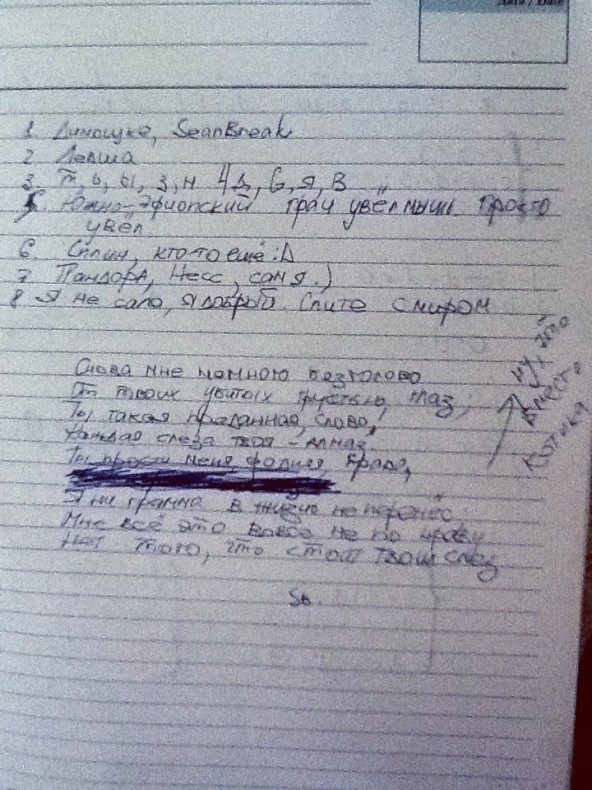 Дата / Date
1 Димощук, SeanBreak
2 Левша
3. т, ь, ы, з, н 4Д, 6, я, В
5. Южно-Эфиопский грач увёл мышь. Просто
увёл
6 Сплин, кто-то ещё :D
7 Пандора, Несс, сам я.)
8 Я не сало, я добрый. Спите с миром
Снова мне немного безтолово
От твоих убитых грустью глаз,
Ты такая преданная, слово,
Каждая слеза твоя - алмаз,
Ты прости меня, браво,
Я ни грамма в жизни не перенёс.
Мне всё это вовсе не по нраву
Нет того, что стоит твоих слез
Sb.
ну, это
вместо
котика